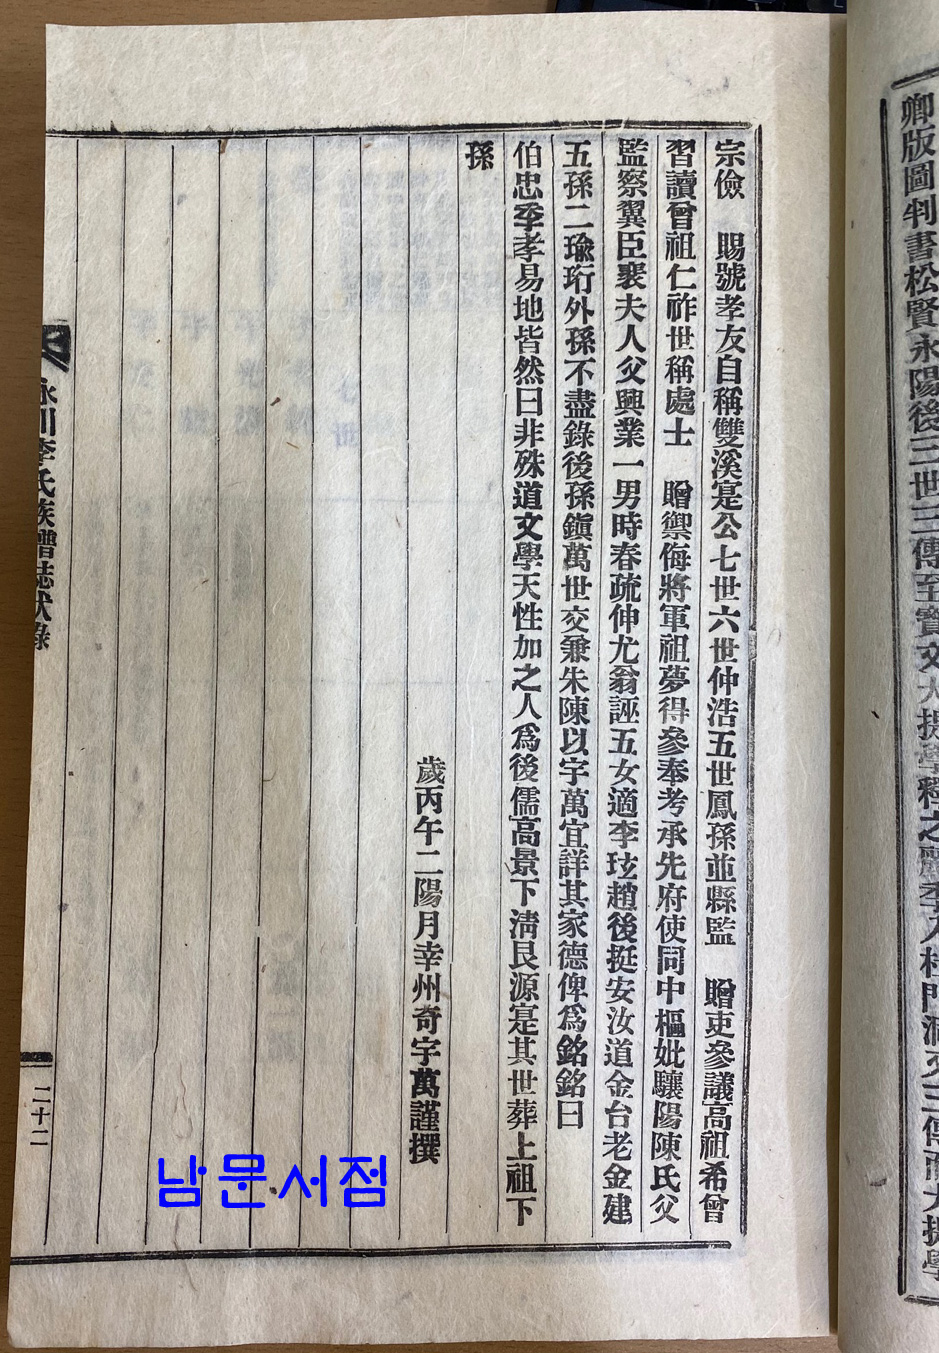 卿版圖判書松賢永陽後三世三傳至寶文大提學
宗儉 賜號孝友自稱雙溪寔公七世六世仲浩五世鳳孫並縣監 贈吏參議高祖希曾
習讀曾祖仁祚世稱處士 贈禦侮將軍祖夢得參奉考承先府使同中樞妣驪陽陳氏父
監察翼臣裵夫人父興業一男時春疏伸尤翁誣五女適李玹趙後挺安汝道金台老金建
五孫二瑜珩外孫不盡錄後孫鎭萬世交兼朱陳以宇萬宜詳其家德俾爲銘銘曰
伯忠季孝易地皆然曰非殊道文學天性加之人爲後儒高景下淸艮源寔其世葬上祖下
孫
歲丙午二陽月幸州奇宇萬謹撰
永川李氏族譜誌狀錄
二十二
남문서점